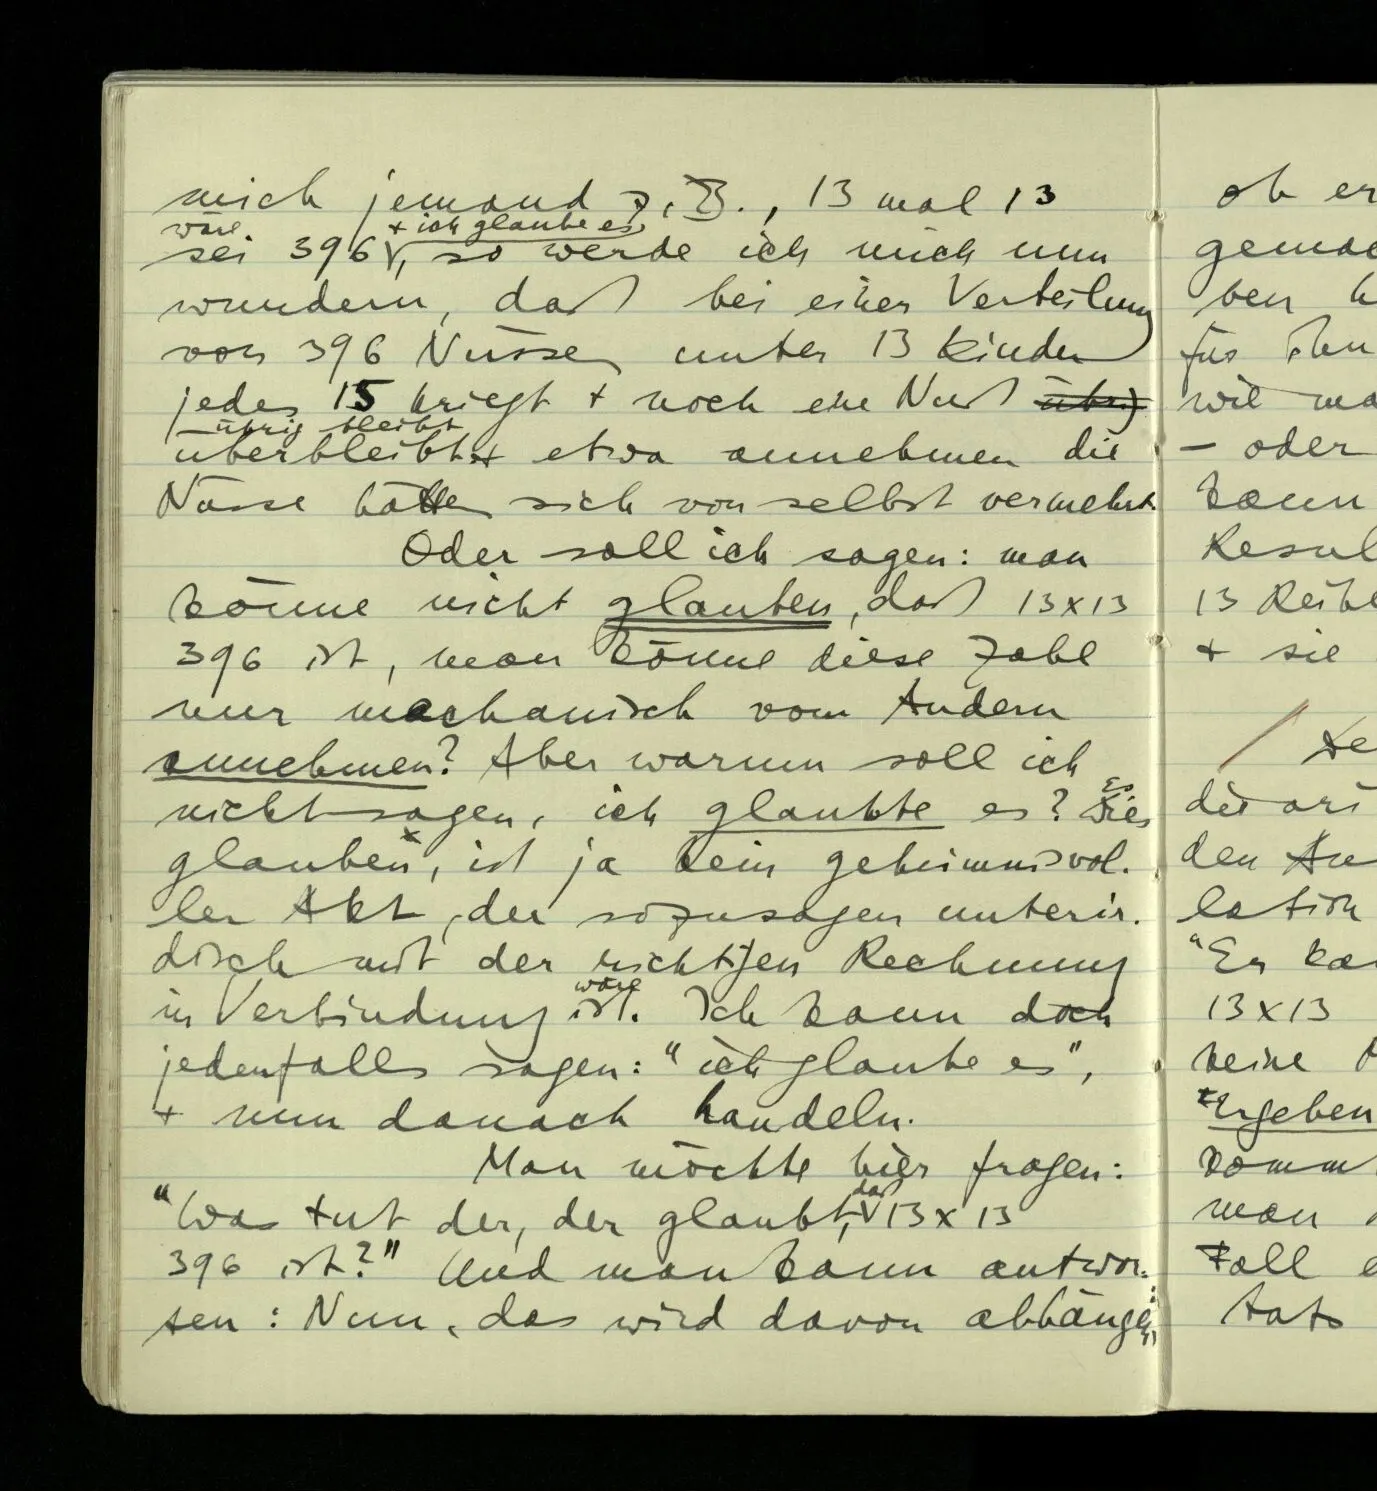 mich jemand z.B., 13 mal 13
wäre + ich glaube es,
sei 396, so werde ich mich nun
wundern, daß bei einer Verteilung
von 396 Nüssen unter 13 Kinder
jedes 15 kriegt + noch eine Nuß übrig
übrig bleibt
überbleibt + etwa annehmen die
Nüsse hätten sich von selbst vermehrt.
Oder soll ich sagen: man
könne nicht glauben, daß 13x13
396 ist, man könne diese Zahl
nur mechanisch vom Andern
annehmen? Aber warum soll ich
nicht sagen, ich glaubte es? Es
glauben, ist ja kein geheimnisvol-
ler Akt, der sozusagen unterir-
disch mit der richtigen Rechnung
wäre
in Verbindung ist. Ich kann doch
jedenfalls sagen: "ich glaube es",
+ nun danach handeln.
Man möchte hier fragen:
daß
"Was tut der, der glaubt, 13x13
396 ist?" Und man kann antwor-
ten: Nun, das wird davon abhängen,
ob er
ben
für ihn
wie
– oder
kann
13
+ sie
den
"Er
13x13
keine
man